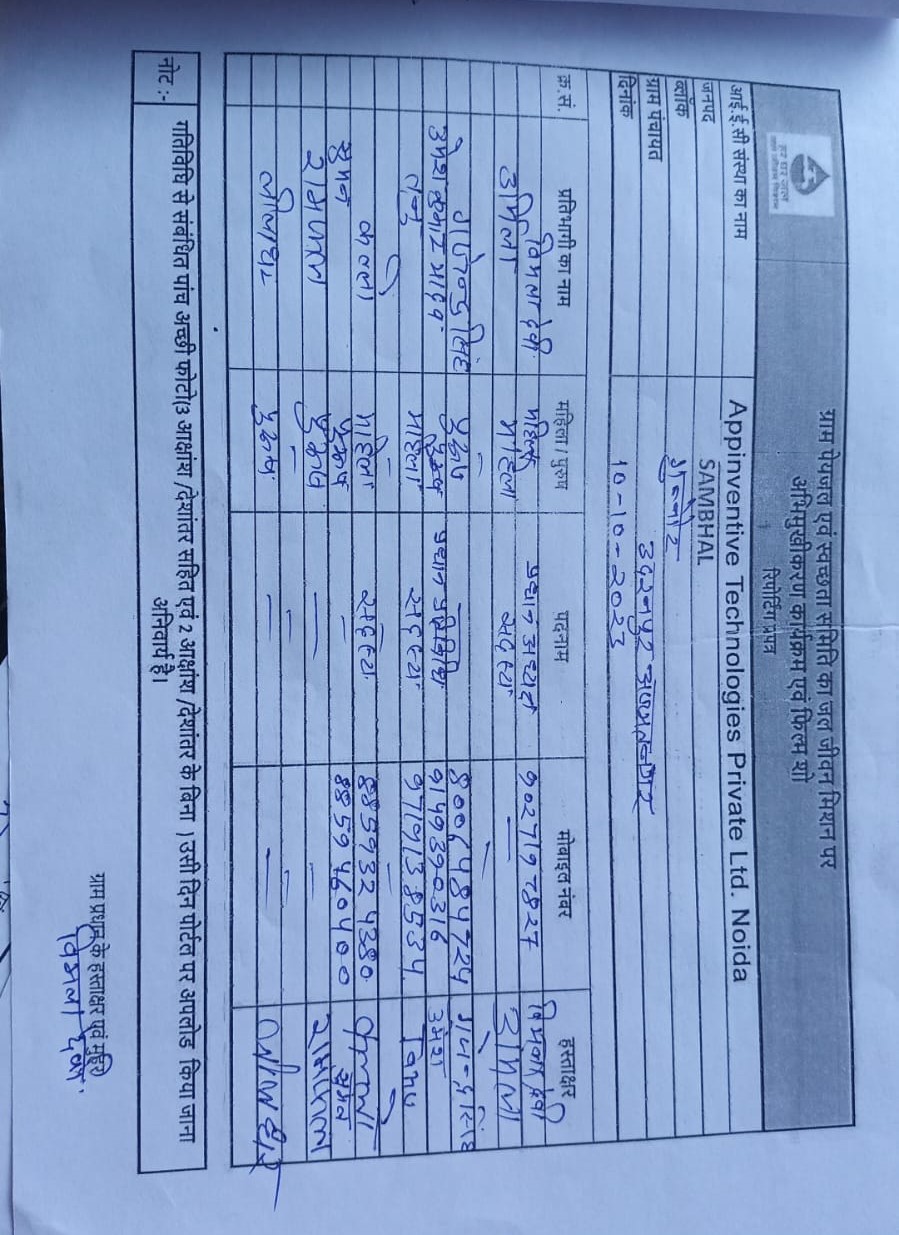 ग्राम पेयजल एवं स्वच्छता समिति का जल जीवन मिशन पर
अभिमुखीकरण कार्यक्रम एवं फिल्म शो
रिपोर्टिंग प्रपत्र
हर घर जल
आई.ई.सी संस्था का नाम Appinventive Technologies Private Ltd. Noida
जनपद SAMBHAL
ब्लॉक गुन्नौर
ग्राम पंचायत
दिनांक 10-10-2023
क्र.सं. प्रतिभागी का नाम महिला / पुरुष पदनाम मोबाइल नंबर हस्ताक्षर
विमला देवी महिला प्रधान अध्यक्ष 9027197827 विमला देवी
उर्मिला महिला सदस्य 〃 उर्मिला
गजेन्द्र सिंह पुरुष 8006484724
उमेश कुमार यादव पुरुष प्रधान प्रतिनिधि 9149390316 उमेश
महिला सदस्य 9719138534
कमला महिला सदस्य 8859324380 कमला
सुमन पुरुष 8859460400 सुमन
रामपाल पुरुष रामपाल
लीलाधर पुरुष लीलाधर
नोट :- गतिविधि से संबंधित पांच अच्छी फोटो(3 आक्षांश /देशांतर सहित एवं 2 आक्षांश /देशांतर के बिना ) उसी दिन पोर्टल पर अपलोड किया जाना
अनिवार्य है।
ग्राम प्रधान के हस्ताक्षर एवं मुहर
विमला देवी